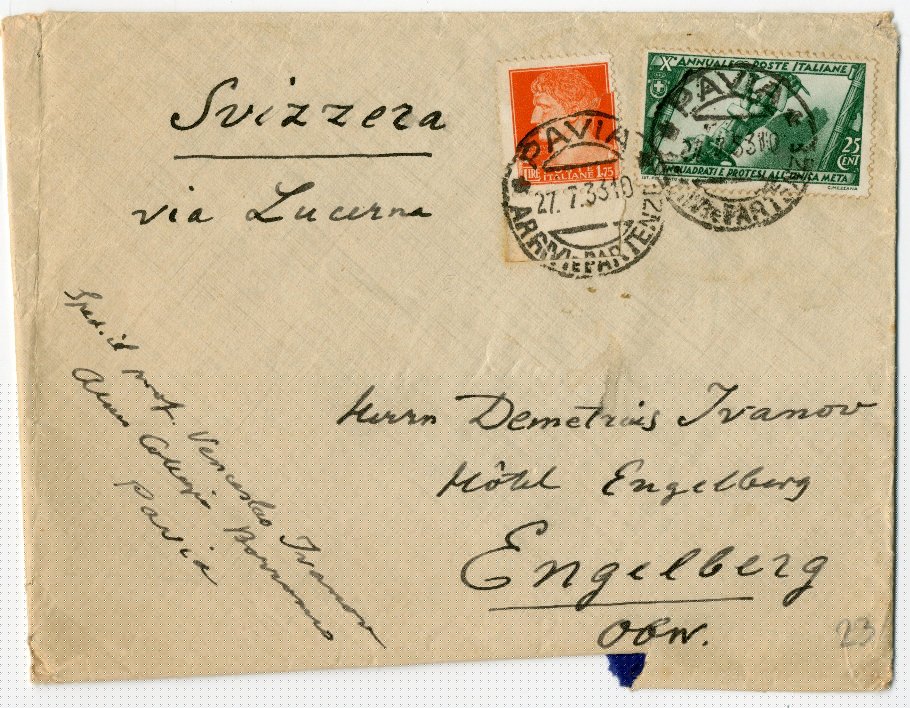 Svizzera
via Lucerna
LIRE ITALIANE 1.75
PAVIA
27. 7.33 10
ARRIVI E PARTENZE
Xº ANNUALE POSTE ITALIANE
25 CENT
INQUADRATI E PROTESI ALL'UNICA META
C. MEZZANA
PAVIA
ARRIVI E PARTENZE
Herrn Demetrius Ivanov
Hôtel Engelberg
Engelberg
Obw.
Sped. il prof. Venceslao Ivanov
Almo Collegio Borromeo
Pavia
23